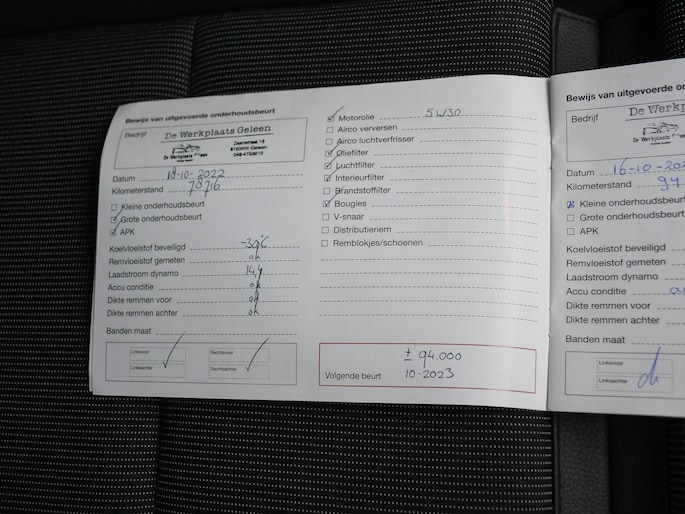 Bewijs van uitgevoerde onderhoudsbeurt
Bedrijf
De Werkplaats Geleen
Datum 18-10-2022
Kilometerstand 78716
Kleine onderhoudsbeurt
Grote onderhoudsbeurt
APK
Koelvloeistof beveiligd -39°C
Remvloeistof gemeten ok
Laadstroom dynamo 14,4
Accu conditie ok
Dikte remmen voor ok
Dikte remmen achter ok
Banden maat
Linksvoor Rechtsvoor
Linksachter Rechtsachter
Motorolie 5W30
Airco verversen
Airco luchtverfrisser
Oliefilter
Luchtfilter
Interieurfilter
Brandstoffilter
Bougies
V-snaar
Distributieriem
Remblokjes/schoenen
± 94.000
Volgende beurt 10-2023
Bewijs van uitgevoerde
Bedrijf
De
Datum 16-10-
Kilometerstand
Kleine onderhoudsbeurt
Grote onderhoudsbeurt
APK
Koelvloeistof beveiligd
Remvloeistof gemeten
Laadstroom dynamo
Accu conditie
Dikte remmen voor
Dikte remmen achter
Banden maat
Linksvoor
Linksachter